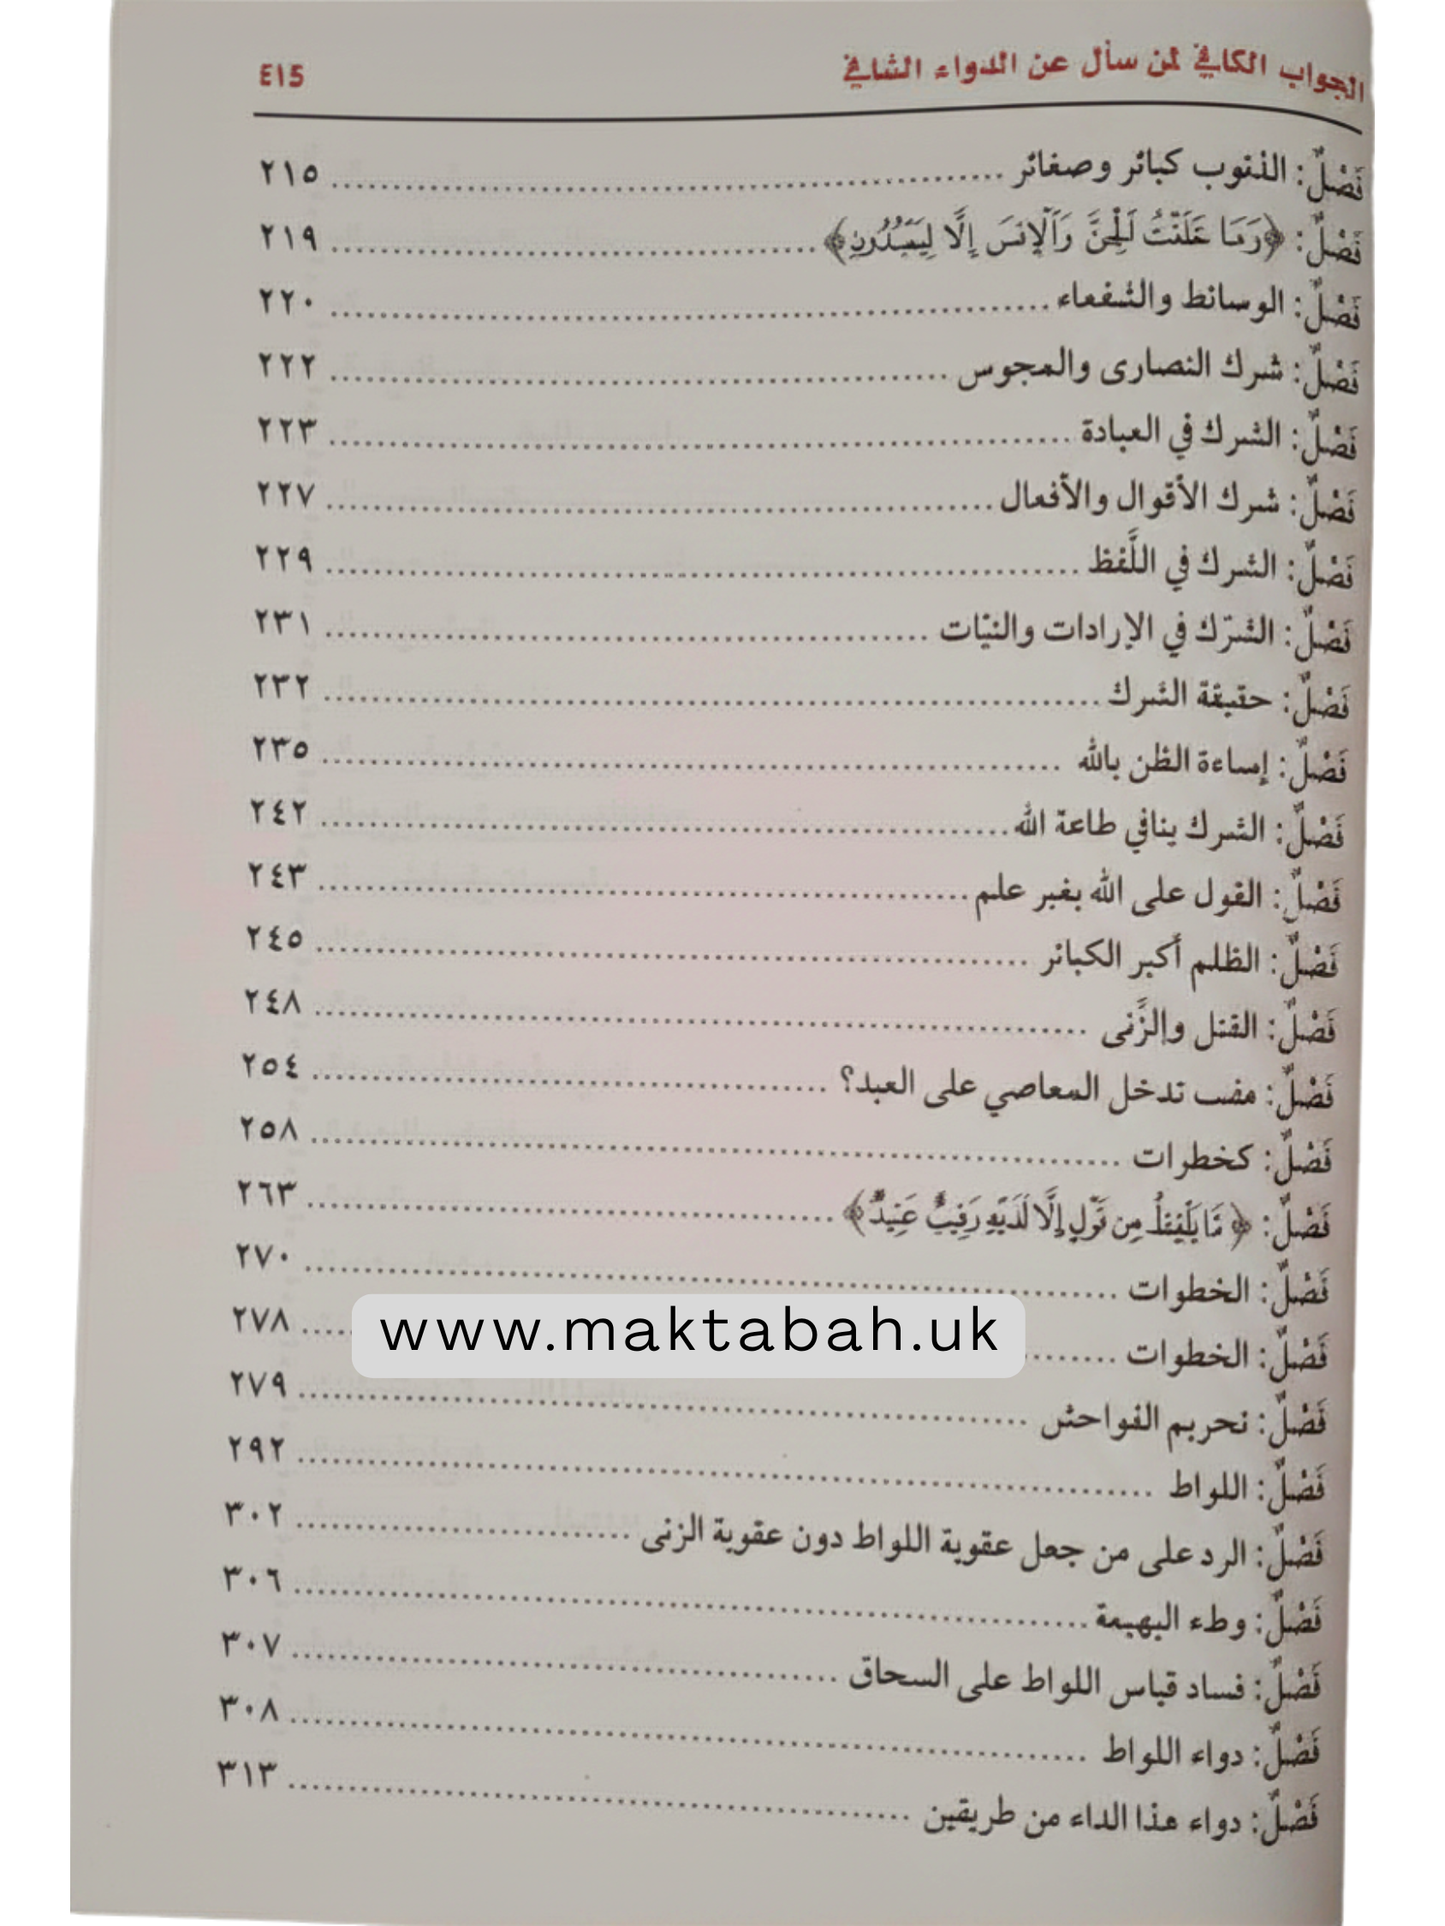 الجواب الكافي لمن سأل عن الدواء الشافي ٤١٥
فَصْلٌ: الذنوب كبائر وصغائر ٢١٥
فَصْلٌ: ﴿وَمَا خَلَقْتُ الْجِنَّ وَالْإِنسَ إِلَّا لِيَعْبُدُونِ﴾ ٢١٩
فَصْلٌ: الوسائط والشفعاء ٢٢٠
فَصْلٌ: شرك النصارى والمجوس ٢٢٢
فَصْلٌ: الشرك في العبادة ٢٢٣
فَصْلٌ: شرك الأقوال والأفعال ٢٢٧
فَصْلٌ: الشرك في اللَّفظ ٢٢٩
فَصْلٌ: الشرك في الإرادات والنيّات ٢٣١
فَصْلٌ: حقيقة الشرك ٢٣٢
فَصْلٌ: إساءة الظن بالله ٢٣٥
فَصْلٌ: الشرك ينافي طاعة الله ٢٤٢
فَصْلٌ: القول على الله بغير علم ٢٤٣
فَصْلٌ: الظلم أكبر الكبائر ٢٤٥
فَصْلٌ: القتل والزِّنى ٢٤٨
فَصْلٌ: تدخل المعاصي على العبد؟ ٢٥٤
فَصْلٌ: ٢٥٨
فَصْلٌ: ﴿مَا يَلْفِظُ مِن قَوْلٍ إِلَّا لَدَيْهِ رَقِيبٌ عَتِيدٌ﴾ ٢٦٣
فَصْلٌ: الخطوات ٢٧٠
فَصْلٌ: الخطوات ٢٧٨
www.maktabah.uk
فَصْلٌ: تحريم الفواحش ٢٧٩
فَصْلٌ: اللواط ٢٩٢
فَصْلٌ: الرد على من جعل عقوبة اللواط دون عقوبة الزنى ٣٠٢
فَصْلٌ: وطء البهيمة ٣٠٦
فَصْلٌ: فساد قياس اللواط على السحاق ٣٠٧
فَصْلٌ: دواء اللواط ٣٠٨
فَصْلٌ: دواء هذا الداء من طريقين ٣١٣